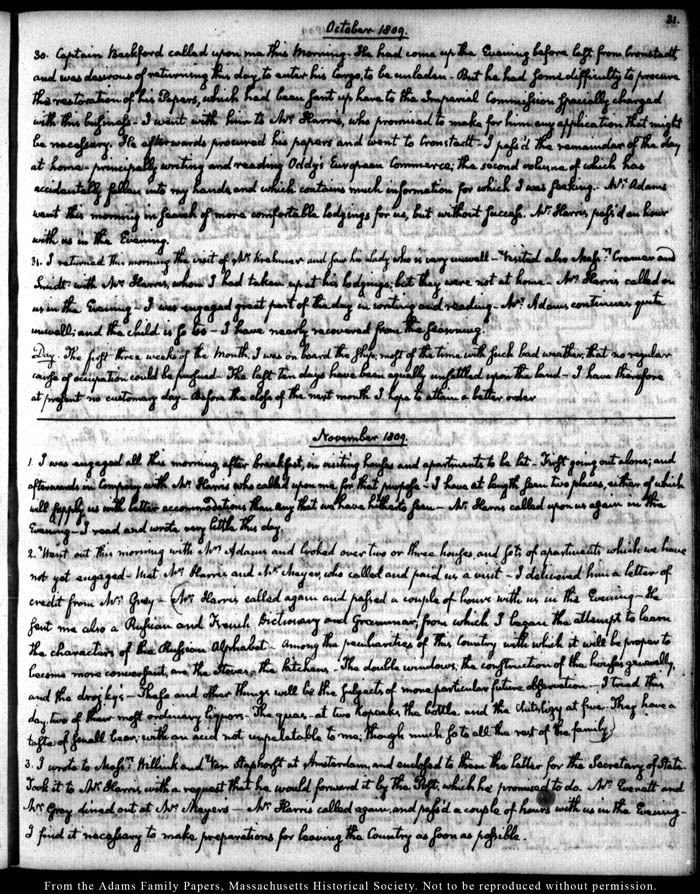 31.
October 1809.
30. Captain Beckford called upon me this Morning. He had come up the Evening before last from Cronstadt,
and was desirous of returning this day, to enter his Cargo, to be unladen. But he had some difficulty to procure
the restoration of his Papers, which had been sent up here to the Imperial Commission specially charged
with this business. I went with him to Mr. Harris, who promised to make for him any application that might
be necessary. He afterwards procured his papers and went to Cronstadt. I pass'd the remainder of the day
at home principally writing and reading Oddy's European Commerce; the second volume of which has
accidentally fallen into my hands, and which contains much information for which I was seeking. Mrs. Adams
went this morning in search of more comfortable lodgings for us, but without success. Mr. Harris pass'd an hour
with us in the Evening.
31. I returned this morning the visit of Mr. Krehmer and saw his lady who is very unwell — Visited also Messrs. Cramer and
Smidt with Mr. Harris, whom I had taken up at his lodgings; but they were not at home — Mr. Harris called on
us in the Evening — I was engaged great part of the day in writing and reading. Mrs. Adams continues quite
unwell; and the child is so too — I have nearly recovered from the seasoning.
Day. The first three weeks of the Month, I was on board the ship, most of the time with such bad weather, that no regular
course of occupation could be pursued. The last ten days have been equally unsettled upon the land — I have therefore
at present no customary day. Before the close of the next month I hope to attain a better order
November 1809.
1. I was engaged all this morning, after breakfast, in visiting houses and apartments to be let. First going out alone; and
afterwards in Company with Mr. Harris who called upon me for that purpose — I have at length seen two places, either of which
will supply us with better accommodations than any that we have hitherto seen — Mr. Harris called upon us again in the
Evening — I read and wrote very little this day.
2. Went out this morning with Mrs. Adams and looked over two or three houses and sets of apartments which we have
not yet engaged. Met Mr. Harris and Mr. Meyer, who called and paid us a visit — I delivered him a letter of
credit from Mr. Gray — Mr. Harris called again and passed a couple of hours with us in the Evening — He
sent me also a Russian and French Dictionary and Grammar, from which I began the attempt to learn
the characters of the Russian Alphabet. Among the peculiarities of this Country with which it will be proper to
become more conversant, are the stoves, the kitchens. The double windows, the construction of the houses generally,
and the drojky's — These and other things will be the subjects of more particular future observation. I tried this
day, two of their most ordinary liquors. The quas, at two kopeeks the bottle, and the chitslizy at five. They have a
taste of small beer, with an acid not unpalatable to me, though much so to all the rest of the family
3. I wrote to Messrs. Willink and Van Staphorst at Amsterdam, and enclosed to them the letter for the Secretary of State.
Took it to Mr. Harris, with a request that he would forward it by the Post, which he promised to do. Mr. Everett and
Mr. Gray dined out at Mr. Meyers — Mr. Harris called again, and pass'd a couple of hours with us in the Evening —
I find it necessary to make preparations for leaving the Country as soon as possible.
From the Adams Family Papers, Massachusetts Historical Society. Not to be reproduced without permission.